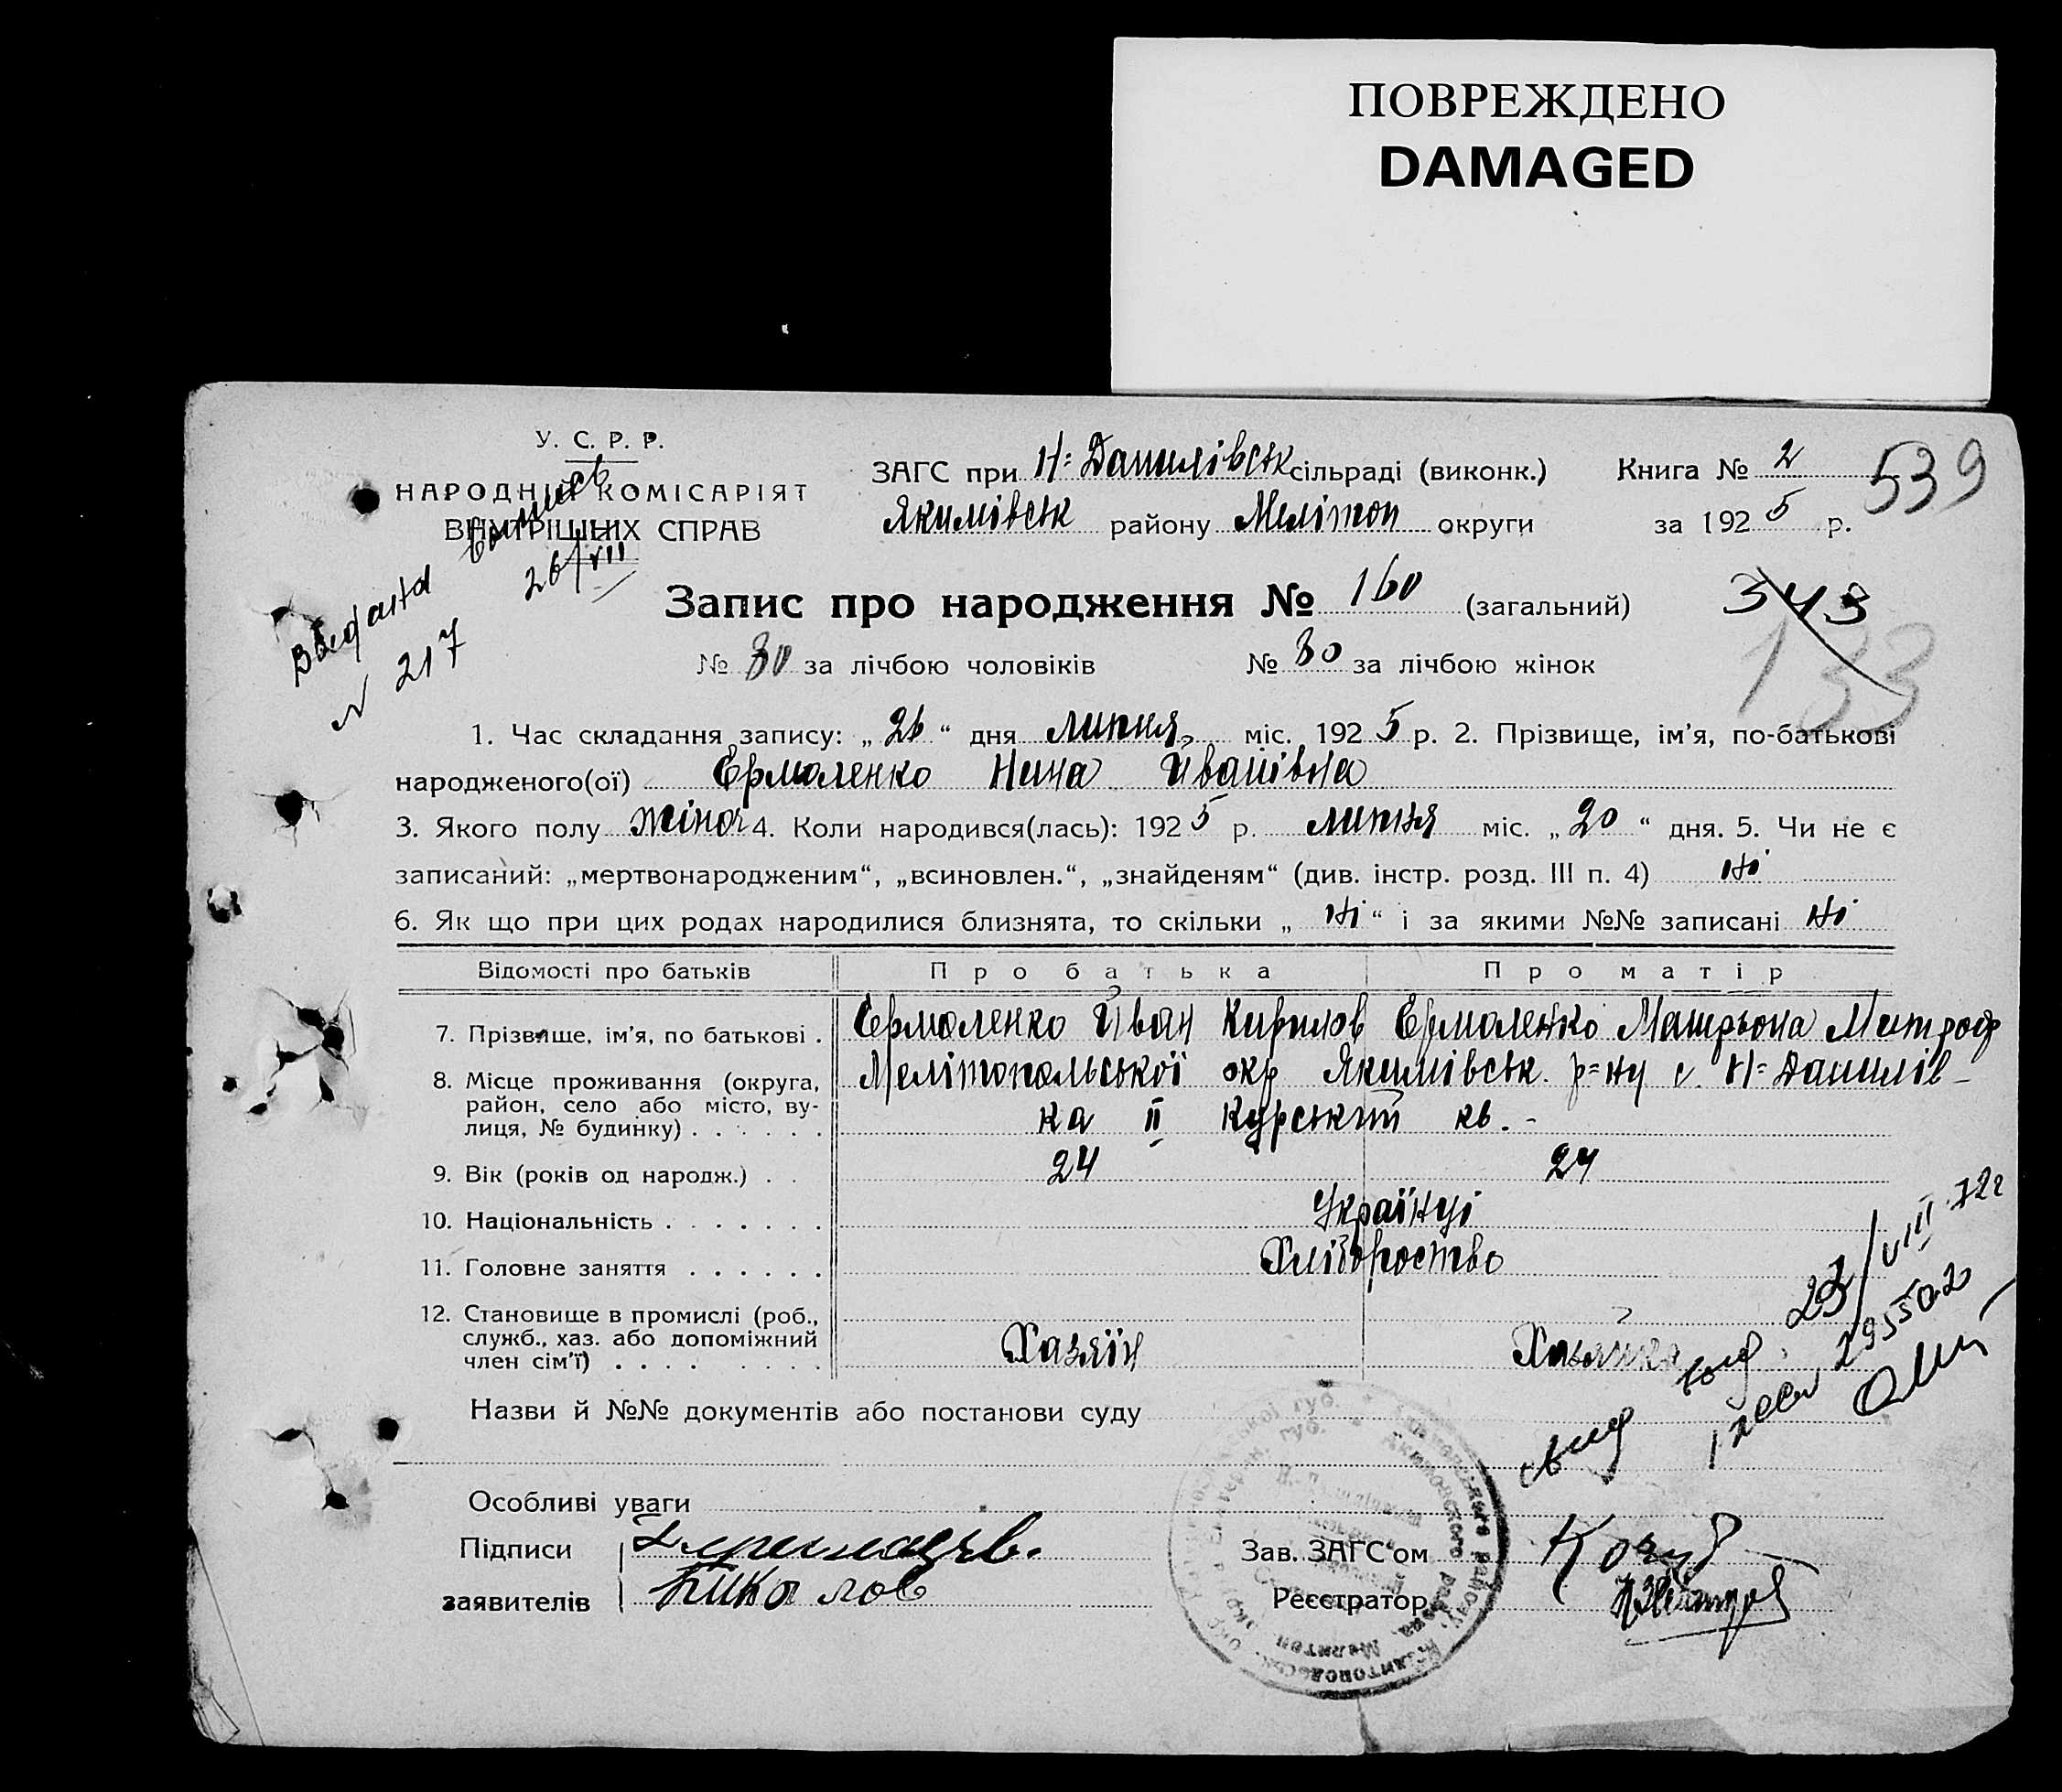 ПОВРЕЖДЕНО
DAMAGED
У. С. Р. Р.
НАРОДНИЙ КОМІСАРІЯТ
ВНУТРІШНІХ СПРАВ
26/VII
N 217
ЗАГС при Н-Данилівськ сільраді (виконк.) Книга № 2
539
Якимівськ району Мелітоп округи за 1925 р.
Запис про народження № 160 (загальний)
343
133
№ 80 за лічбою чоловіків № 80 за лічбою жінок
1. Час складання запису: „26“ дня липня міс. 1925 р. 2. Прізвище, ім'я, по-батькові
народженого(ої) Ермоленко Нина Иванівна
3. Якого полу жіноч 4. Коли народився(лась): 1925 р. липня міс. „20“ дня. 5. Чи не є
записаний: „мертвонародженим“, „всиновлен.“, „знайденям“ (див. інстр. розд. III п. 4) ні
6. Як що при цих родах народилися близнята, то скільки „ні“ і за якими №№ записані ні
Відомості про батьків Про батька Про матір
7. Прізвище, ім'я, по батькові . Ермоленко Иван Кирилов Ермоленко Матрьона Митроф
8. Місце проживання (округа, Мелітопольської окр Якимівськ. р-ну с. Н-Данилів-
район, село або місто, ву-
лиця, № будинку) . . . . . . ка II Курський кв. -
9. Вік (років од народж.) . . 24 24
10. Національність . . . . . . . Українці
11. Головне заняття . . . . . . Хліборобство
12. Становище в промислі (роб.,
служб., хаз. або допоміжний
член сім'ї) . . . . . . . . Хазяїн Хазяйка
23/VIII 72г
295502
Назви й №№ документів або постанови суду
Особливі уваги
Підписи
заявителів Николов
Зав. ЗАГС'ом
Реєстратор